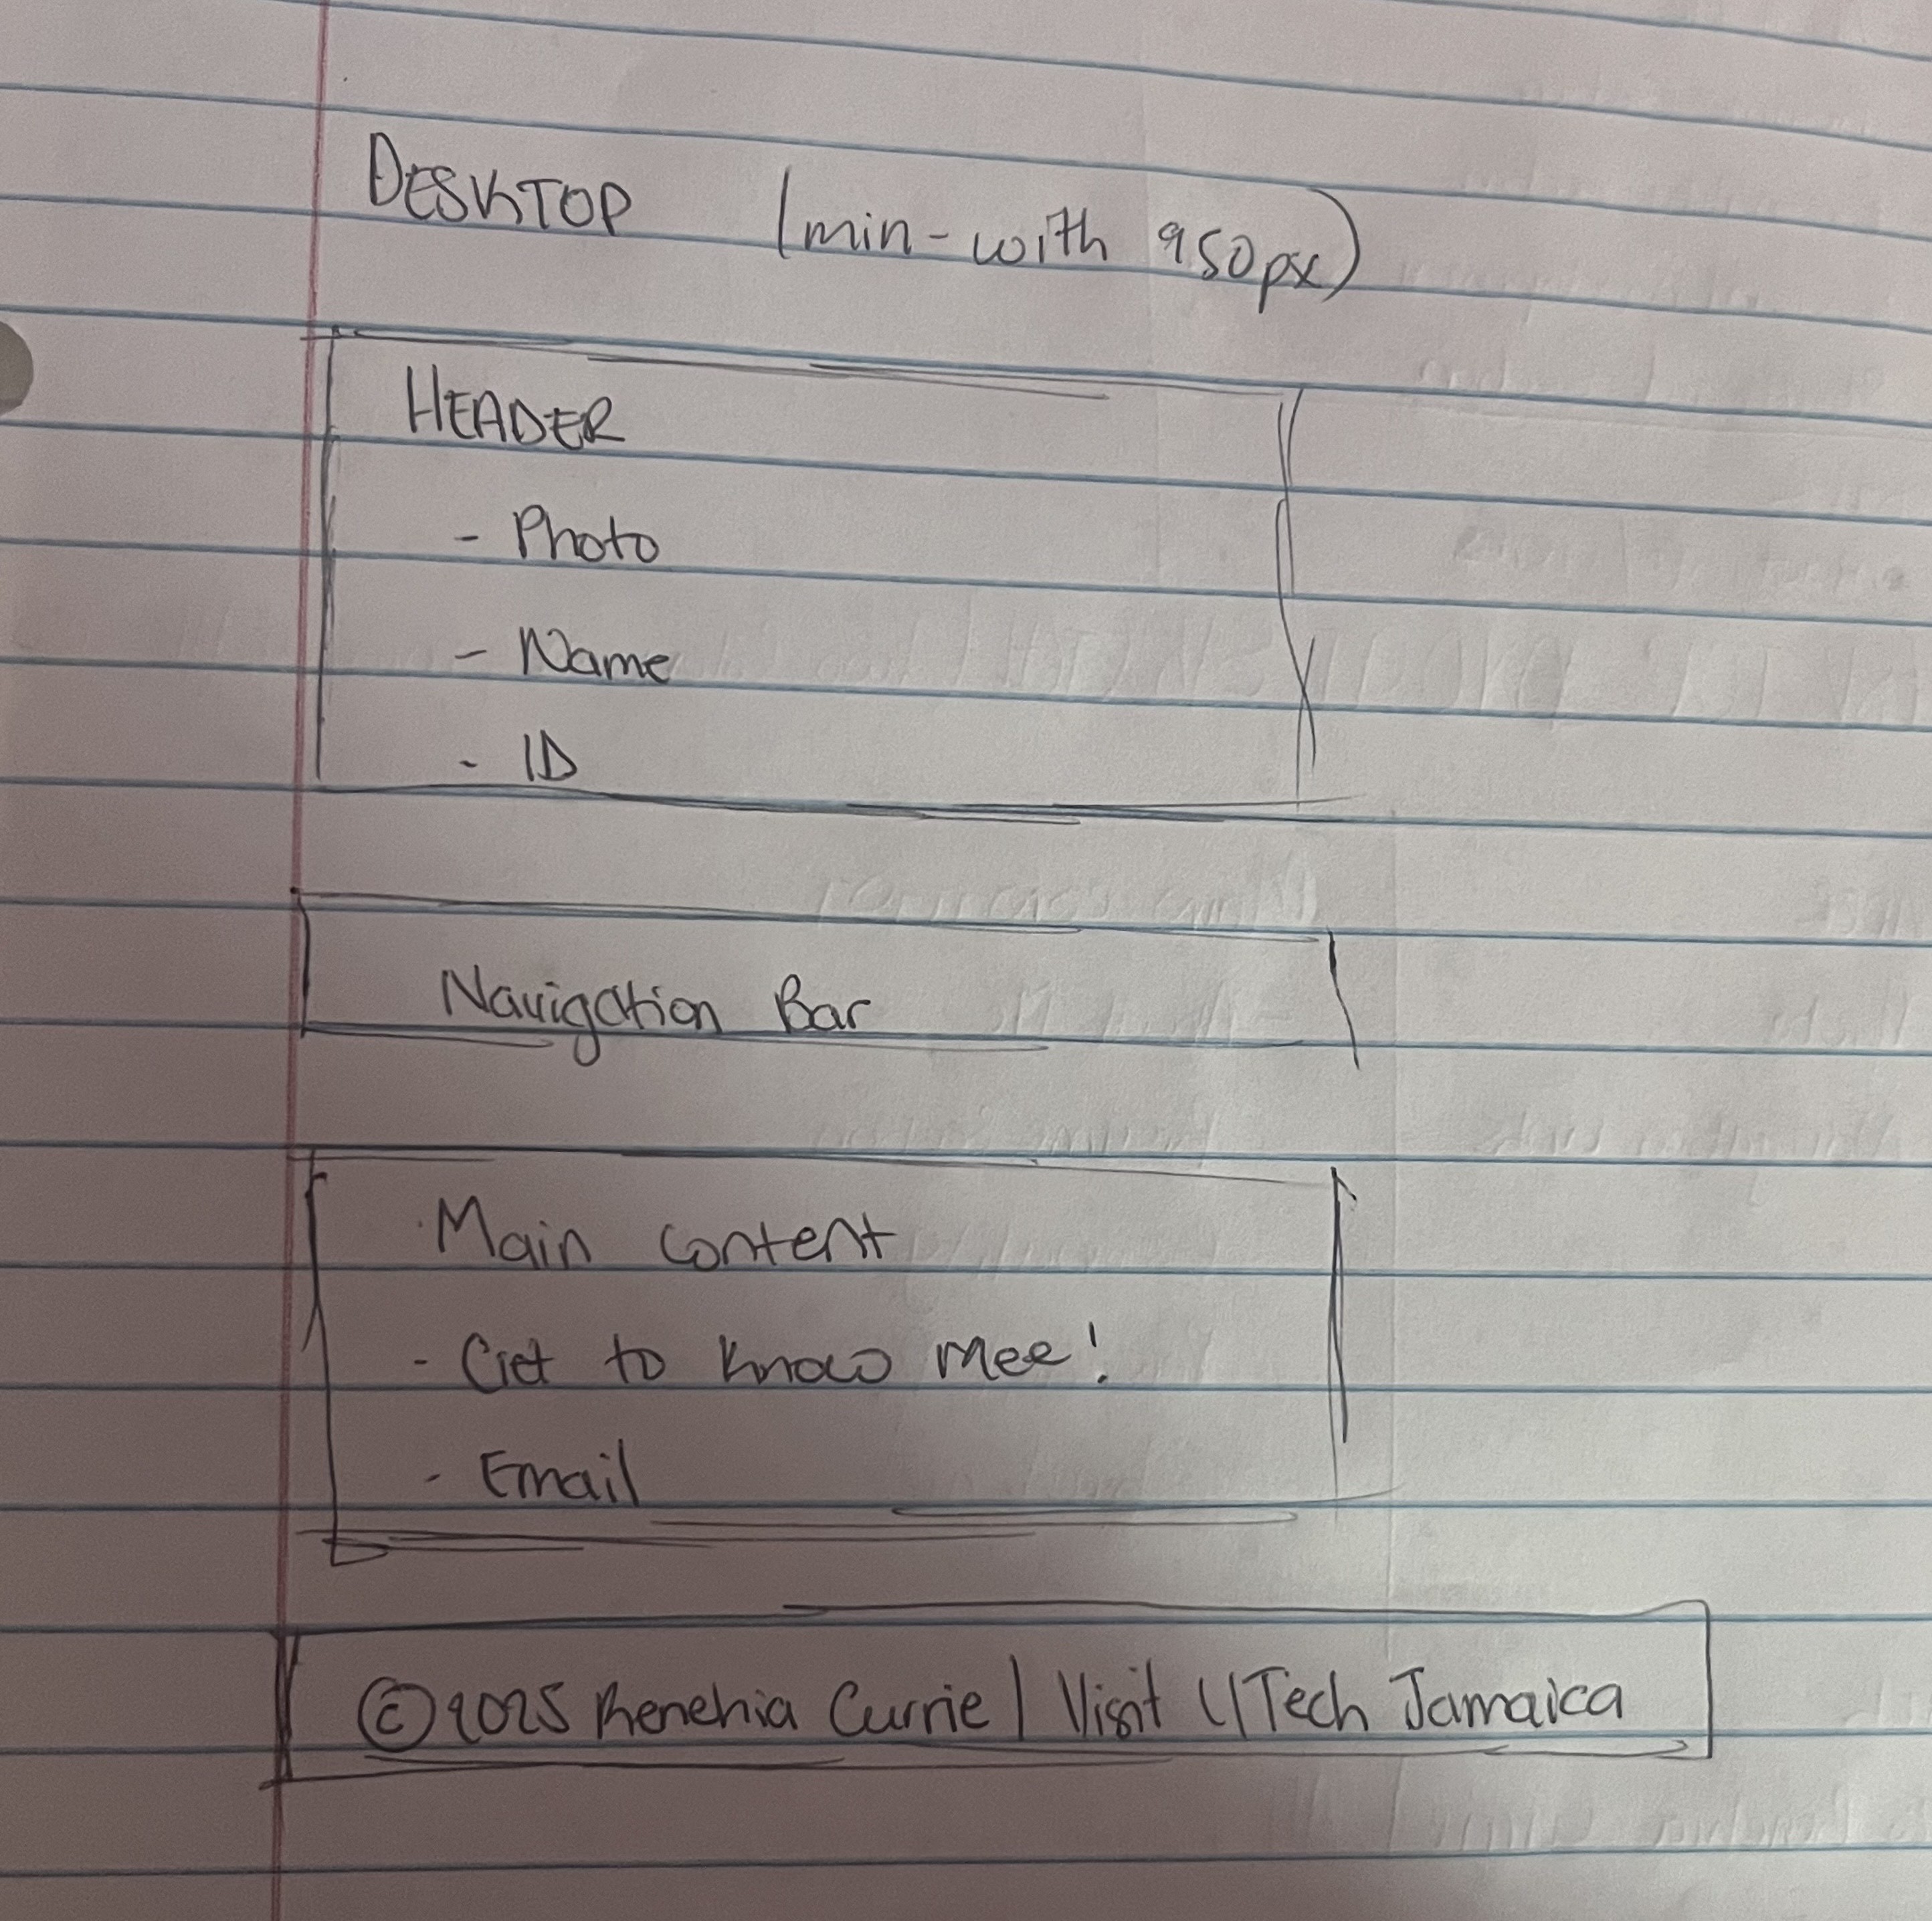 DESKTOP (min-with 950px)
HEADER
- Photo
- Name
- ID
Navigation Bar
Main Content
- Get to know mee!
- Email
© 2025 Renehia Currie | Visit UTech Jamaica